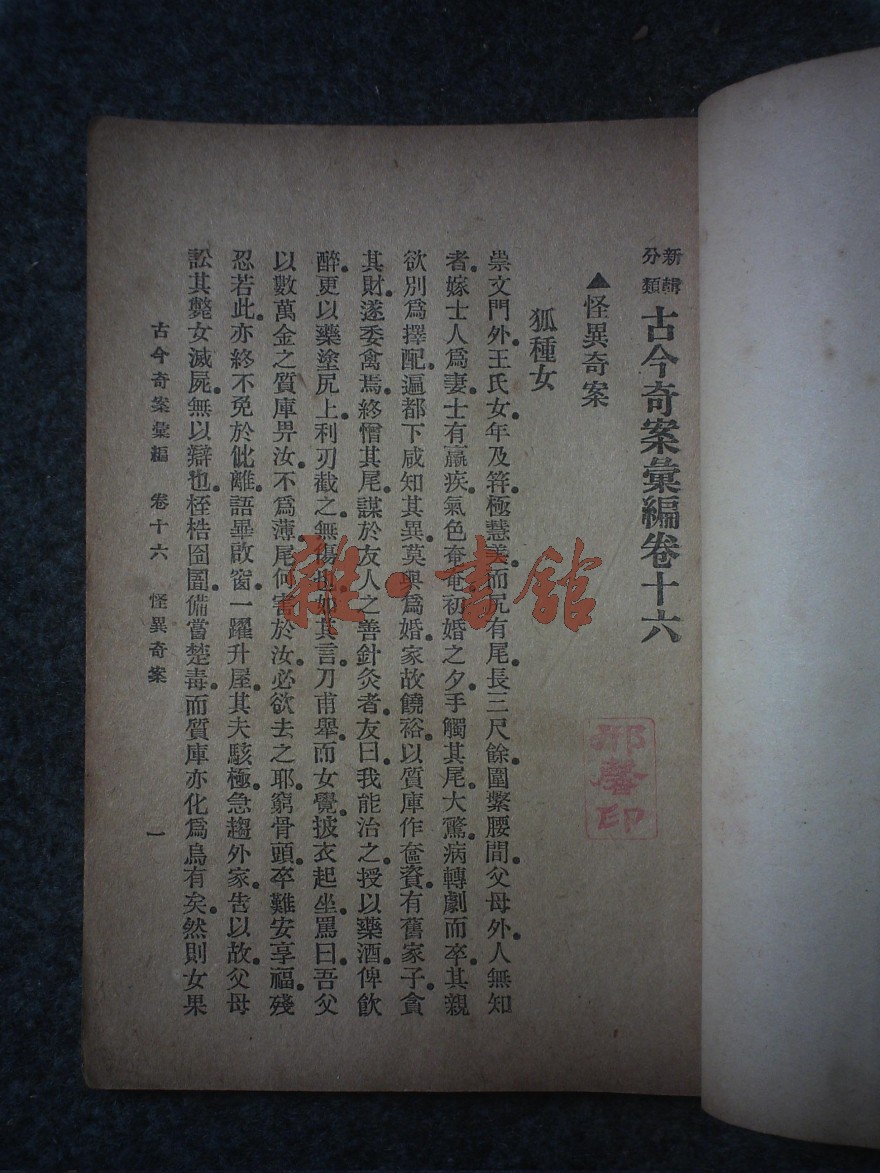 新輯
分類
古今奇案彙編卷十六
▲怪異奇案
狐種女
崇文門外。王氏女。年及笄。極慧美。而尻有尾。長三尺餘。圍繫腰間。父母外。人無知
者。嫁士人爲妻。士有羸疾。氣色奄奄。初婚之夕。手觸其尾。大驚。病轉劇而卒。其親
欲別爲擇配。遍都下咸知其異。莫與爲婚。家故饒裕。以質庫作奩資。有舊家子。貪
其財。遂委禽焉。終憎其尾。謀於友人之善針灸者。友曰。我能治之。授以藥酒。俾飲
醉。更以藥塗尻上。利刃截之。無傷也。如其言。刀甫舉。而女覺。披衣起坐。罵曰。吾父
以數萬金之質庫畀汝。不爲薄。尾何害於汝。必欲去之耶。窮骨頭。卒難安享福。殘
忍若此。亦終不免於仳離。語畢啟窗。一躍升屋。其夫駭極。急趨外家。告以故。父母
訟其斃女滅屍。無以辯也。桎梏囹圄。備嘗楚毒。而質庫亦化爲烏有矣。然則女果
古今奇案彙編 卷十六 怪異奇案 一
雜·書館